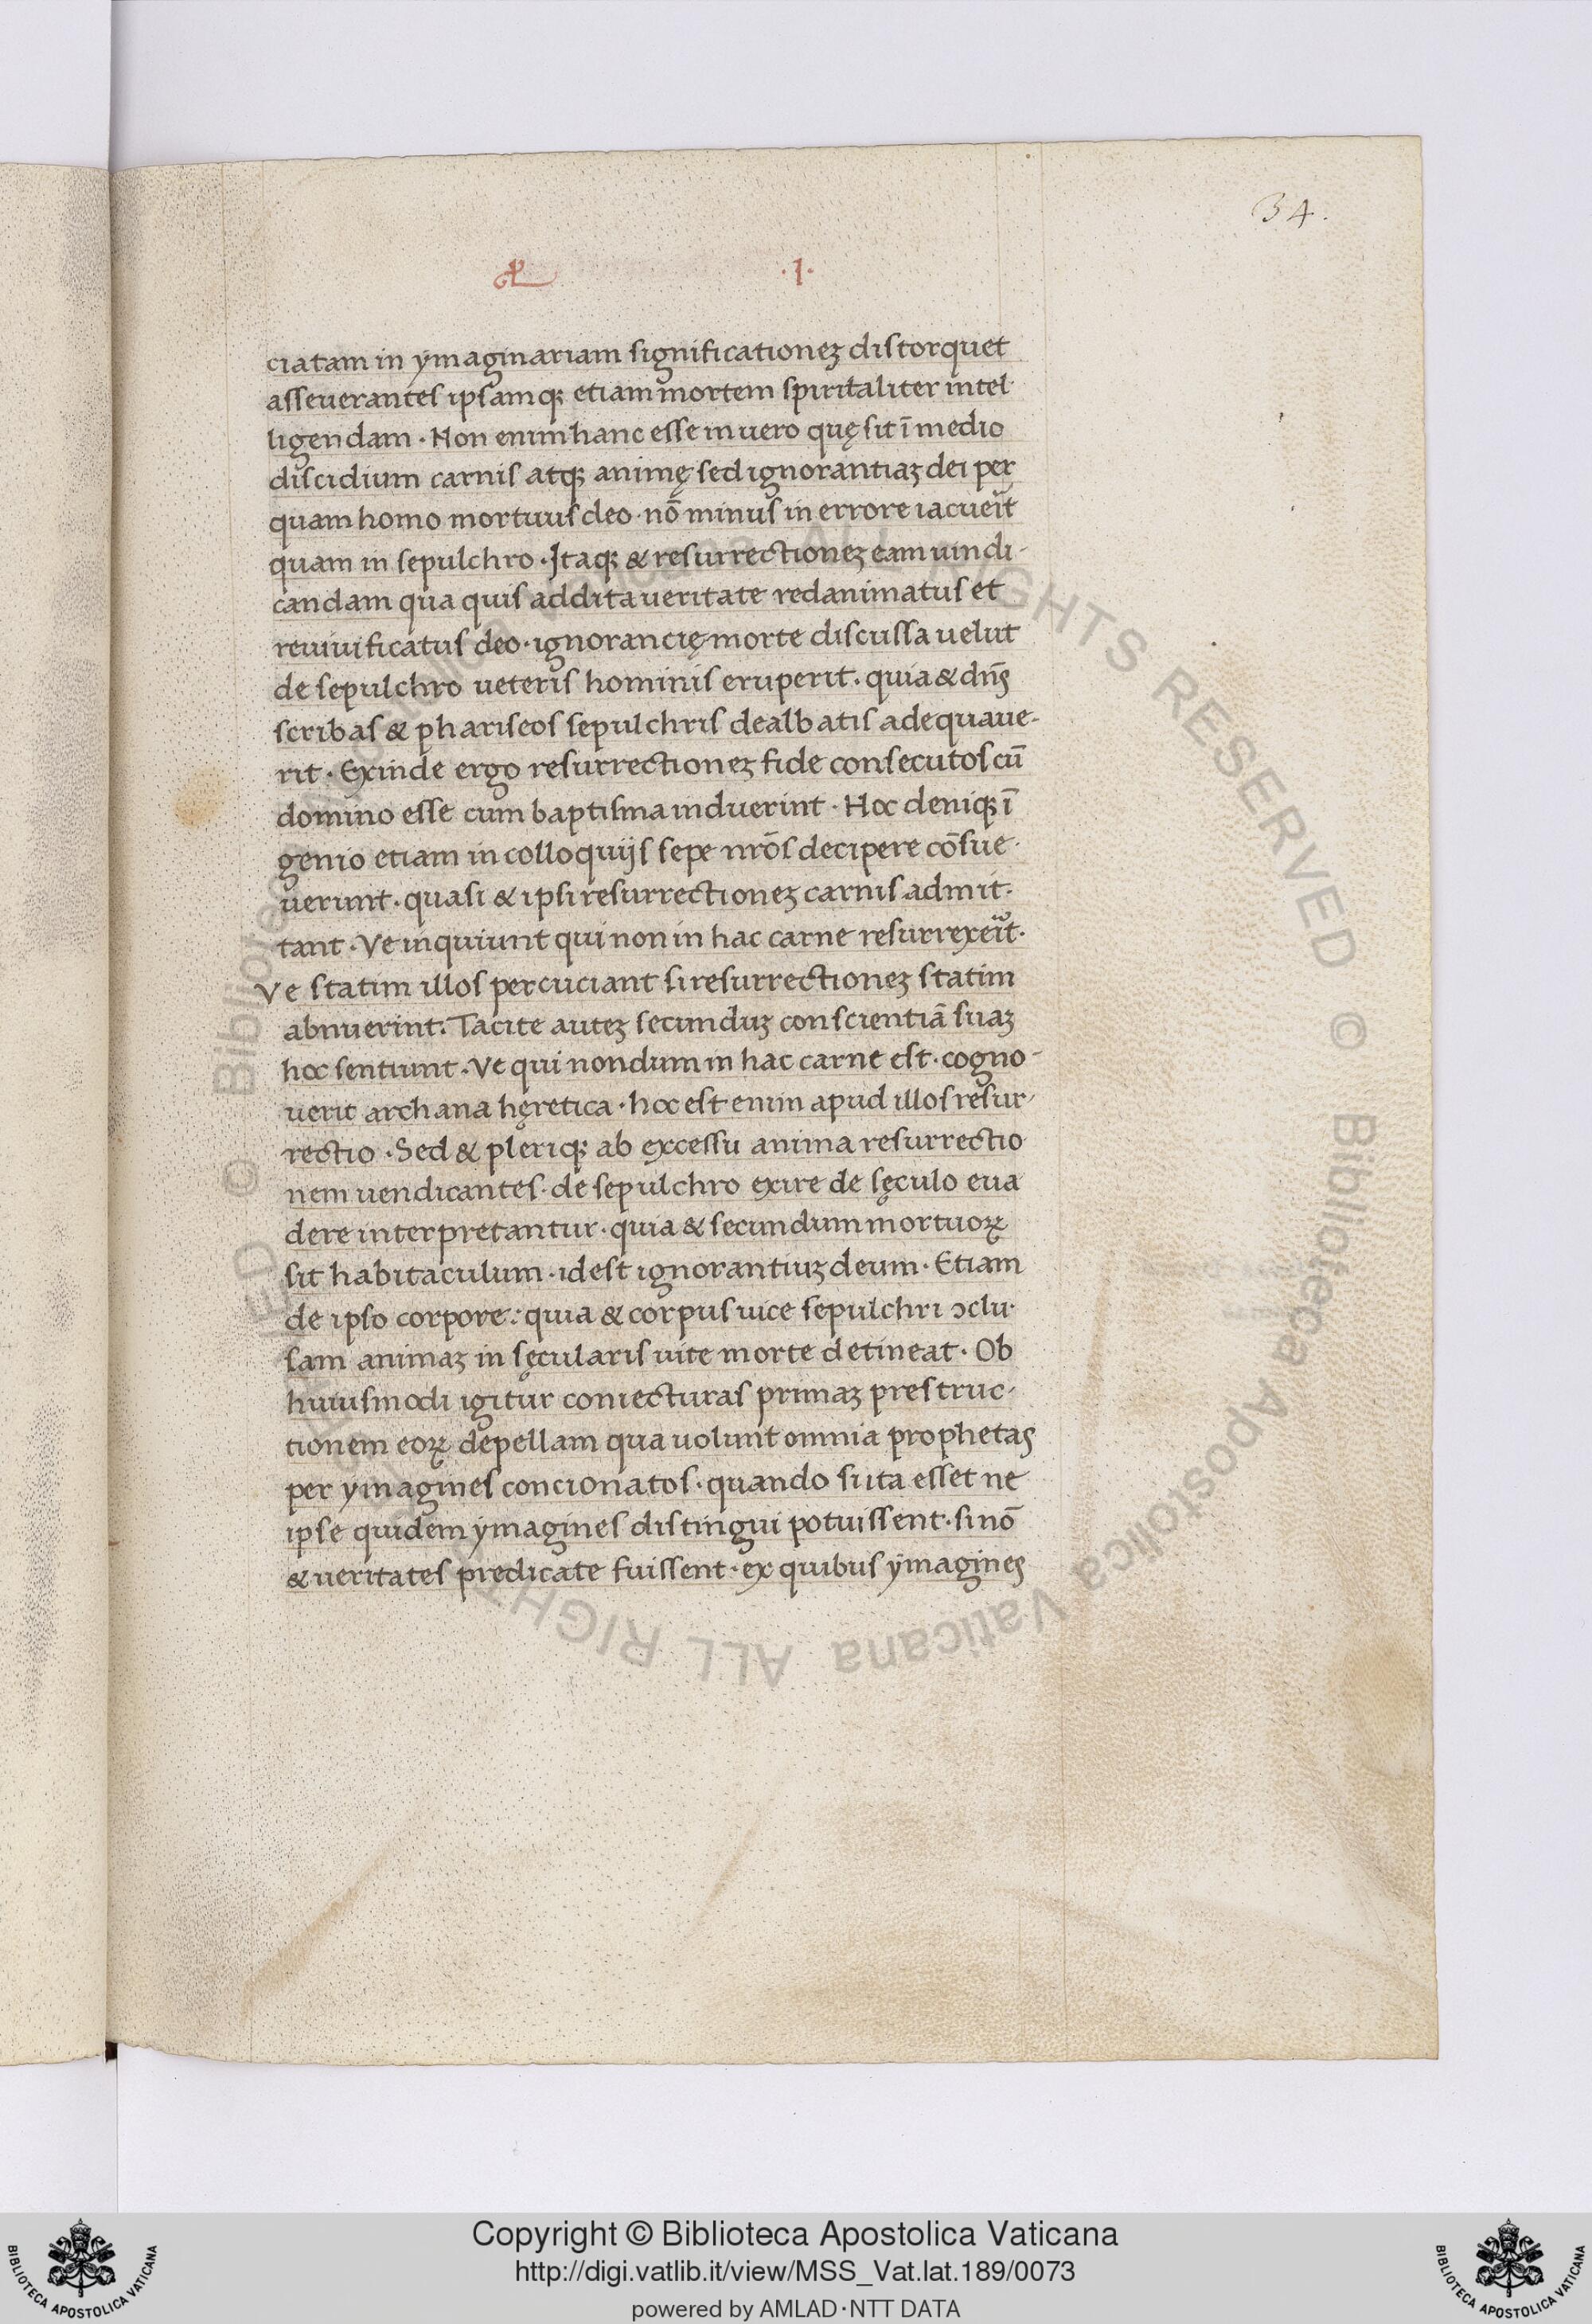 34.
·I·
ciatam in ymaginariam significationeʒ distorquet
asseuerantes ipsamqꝫ etiam mortem spiritaliter intel-
ligendam · Non enim hanc esse in uero quę sit ī medio
discidium carnis atqꝫ animę sed ignorantiaʒ dei per
quam homo mortuus deo · nō minus in errore iacueīt
quam in sepulchro · Itaqꝫ & resurrectioneʒ eam uindi-
candam qua quis addita ueritate redanimatus et
reuiuificatus deo · ignorancię morte discussa uelut
de sepulchro ueteris hominis eruperit · quia & dn̄s
scribas & phariseos sepulchris dealbatis adequaue-
rit · Exinde ergo resurrectioneʒ fide consecutos cū
domino esse cum baptisma induerint · Hoc deniqꝫ ī
genio etiam in colloquijs sepe nr̄os decipere cōsue-
uerunt · quasi & ipsi resurrectioneʒ carnis admit-
tant · Ve inquiunt qui non in hac carne resurrexeīt ·
Ve statim illos percuciant si resurrectioneʒ statim
abnuerint. Tacite auteʒ secunduʒ conscientiā suaʒ
hoc sentiunt · Ve qui nondum in hac carne est · cogno-
uerit archana hęretica · hoc est enim apud illos resur-
rectio · Sed & pleriqꝫ ab excessu anima resurrectio
nem uendicantes · de sepulchro exire de sęculo eua
dere interpretantur · quia & secundum mortuoꝝ
sit habitaculum · idest ignorantiuʒ deum · Etiam
de ipso corpore : quia & corpus uice sepulchri ↄclu-
sam animaʒ in sęcularis uite morte detineat · Ob
huiusmodi igitur coniecturas primaʒ prestruc-
tionem eoꝝ depellam qua uolunt omnia prophetas
per ymagines concionatos · quando si ita esset ne
ipse quidem ymagines distingui potuissent · si nō
& ueritates predicate fuissent · ex quibus ymagines
© Biblioteca Apostolica Vaticana ALL RIGHTS RESERVED © Biblioteca Apostolica Vaticana ALL RIGHTS RESERVED
Copyright © Biblioteca Apostolica Vaticana
http://digi.vatlib.it/view/MSS_Vat.lat.189/0073
powered by AMLAD·NTT DATA
BIBLIOTECA APOSTOLICA VATICANA
BIBLIOTECA APOSTOLICA VATICANA